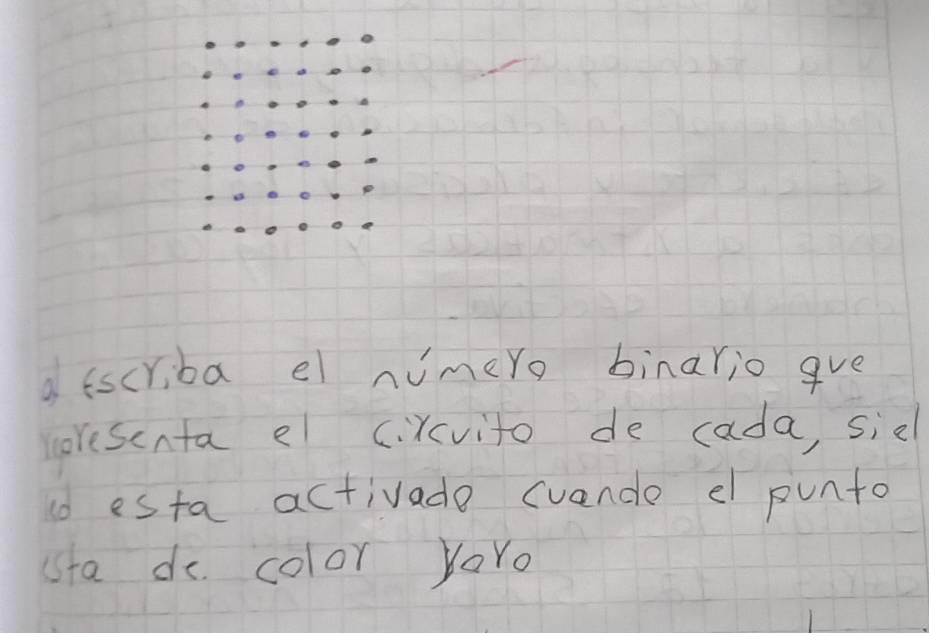 a) Escriba el número binario que
representa el circuito de cada, si el
led esta activado cuando el punto
esta de color